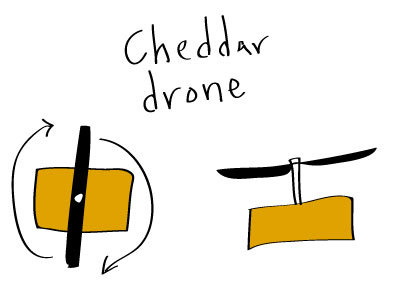 Cheddar
drone